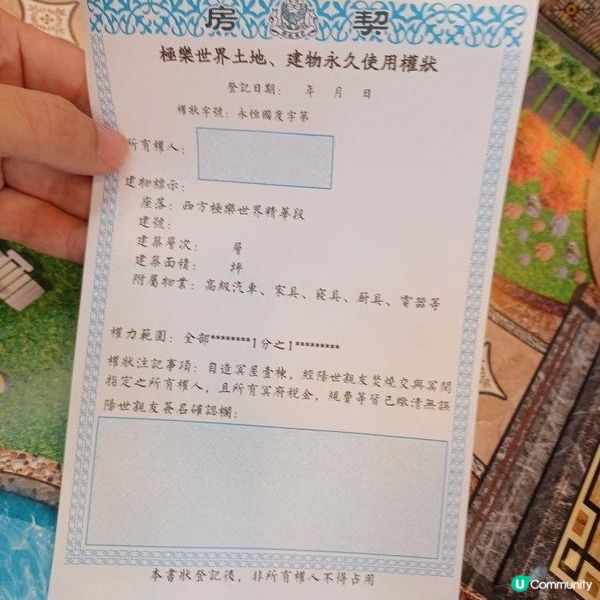 房 契
極樂世界土地、建物永久使用權狀
登記日期： 年 月 日
權狀字號：永恒國度字第
所有權人：
建物標示：
座落：西方極樂世界精華段
建號：
建築層次： 層
建築面積： 坪
附屬物業：高級汽車、家具、寢具、廚具、電器等
權力範圍：全部********1分之1*********
權狀注記事項：自造冥屋壹棟，經陽世親友焚燒交與冥間
指定之所有權人，且所有冥府稅金，規費等皆已繳清無誤
陽世親友簽名確認欄：
本書狀登記後，非所有權人不得占用
U Community